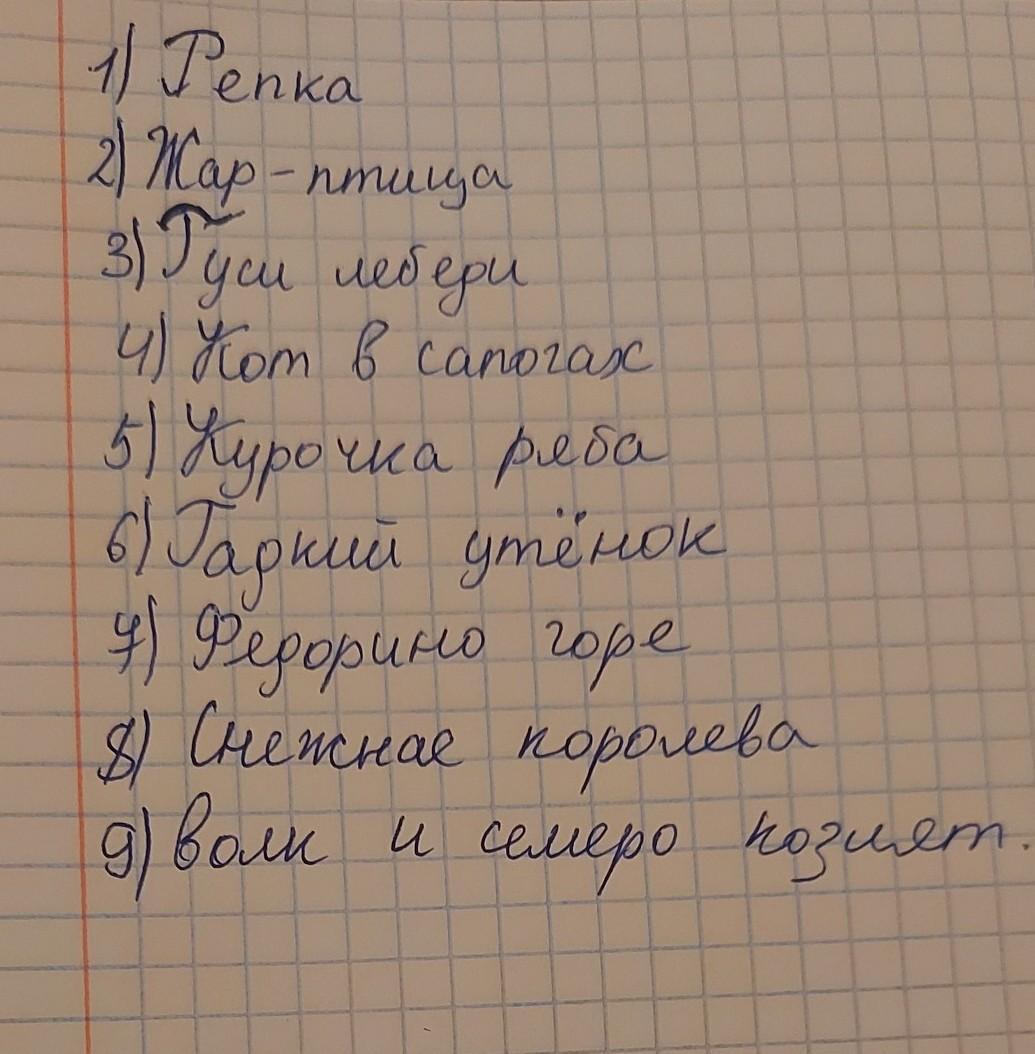 1) Репка
2) Жар-птица
3) Гуси лебеди
4) Кот в сапогах
5) Курочка ряба
6) Гадкий утёнок
7) Федорино горе
8) Снежная королева
9) волк и семеро козлят.